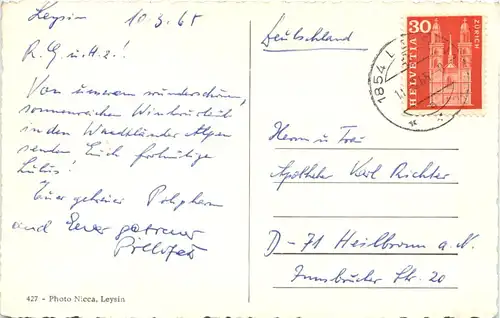 Leysin 10.3.65
R. G. u. H. z.!
Von unserem wunderschönen,
sonnenreichen Winterurlaub
in den Waadtländer Alpen
senden Euch frohmütige
Euer getreuer
und Euer getreuer
427 - Photo Nicca, Leysin
Deutschland
30
HELVETIA
ZÜRICH
1854 L
Herrn u. Frau
Apotheker Karl Richter
D-71 Heilbronn a. N.
Innsbrucker Str. 20